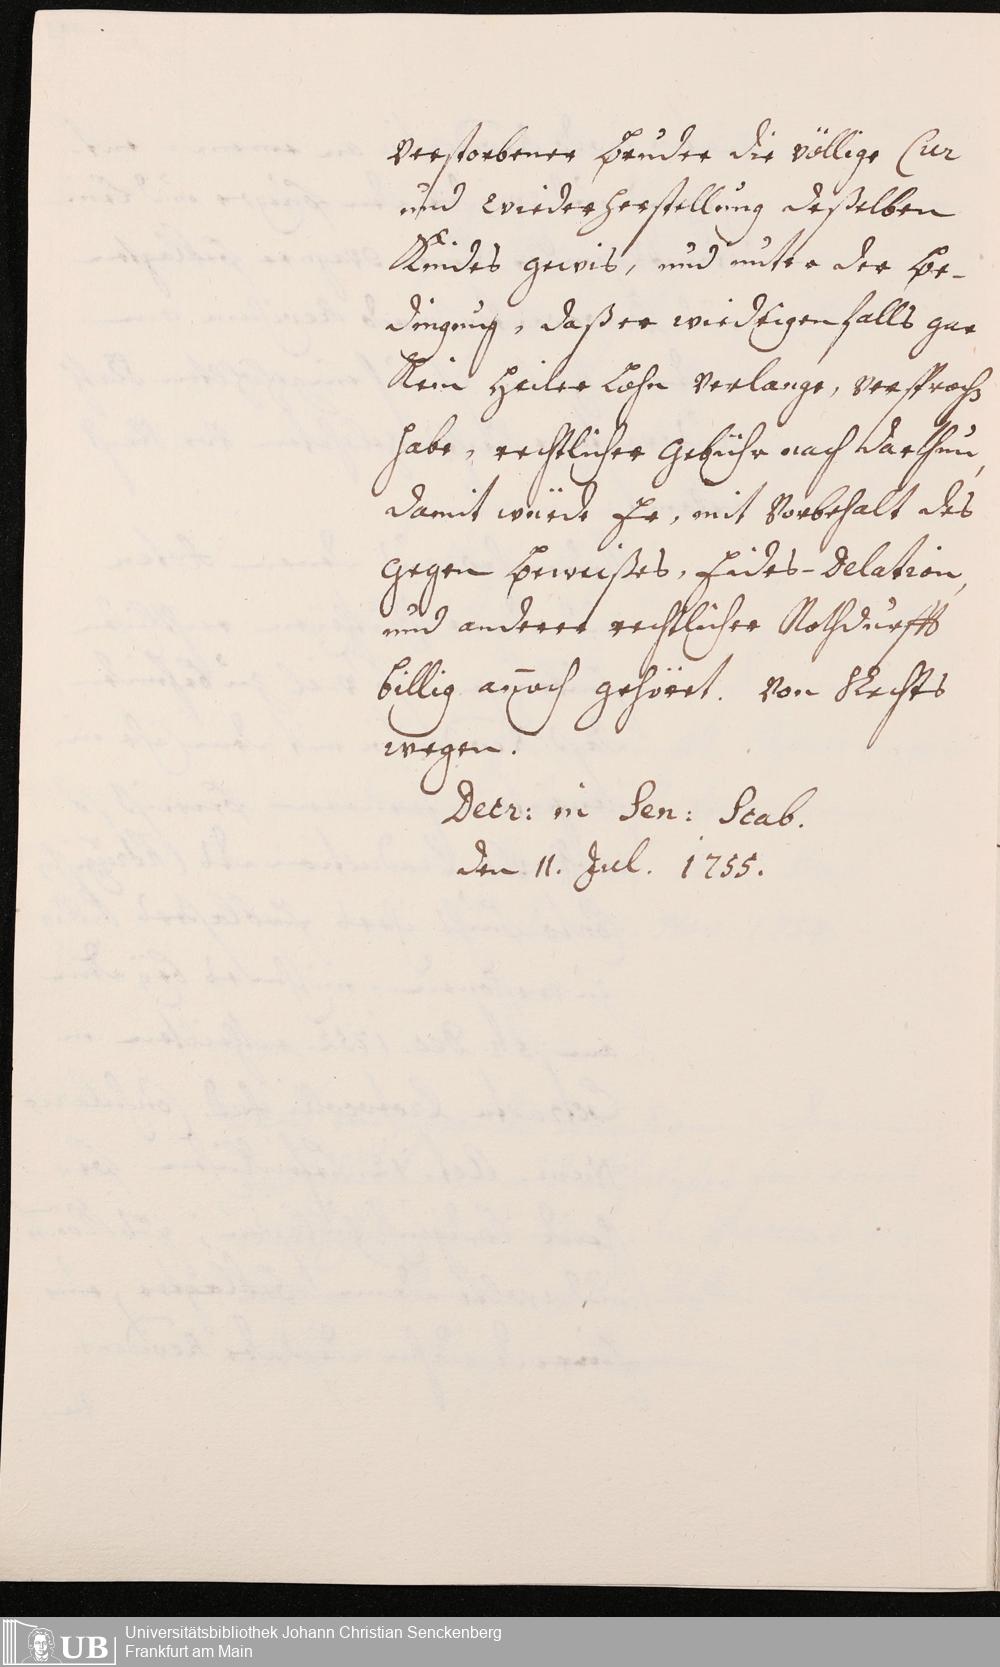 verstorbener Bruder die völlige Cur
und Wiederherstellung deßelben
Kindes gewis, und unter der Be-
dingung, daß er wiedrigenfalls gar
Kein Heiler Lohn verlange, versproch
habe, rechtlicher Gebühr nach darthun,
damit würde Er, mit Vorbehalt des
Gegen Beweißes, Eides-Delation,
und anderer rechtlicher Nothdurfft
billig annoch gehöret. Von Rechts
wegen.
Decr: in Sen: Scab.
den 11. Jul. 1755.
UB
Universitätsbibliothek Johann Christian Senckenberg
Frankfurt am Main